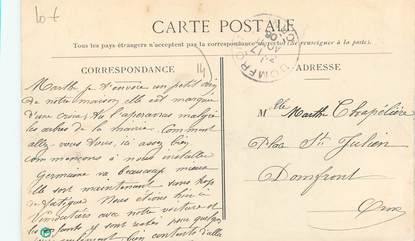 CARTE POSTALE
Tous les pays étrangers n'acceptent pas la correspondance au recto (Se renseigner à la poste.)
CORRESPONDANCE
ADRESSE
DOMFRONT
Marthe, je t'envoie un petit
de notre maison elle est marquée
d'une croix. tu l'apercevras malgré
les arbres de la mairie. Comment
allez vous tous, ici assez bien
commençons à nous installer
Germaine va beaucoup mieux
elle sont maintenant
de fatigue. Nous étions hier à
Vimoutiers avec notre voiture et
les y sont restés pour quelques
seulement bien contents d'aller
Melle Marthe Chapelière
Place St Julien
Domfront
Orne